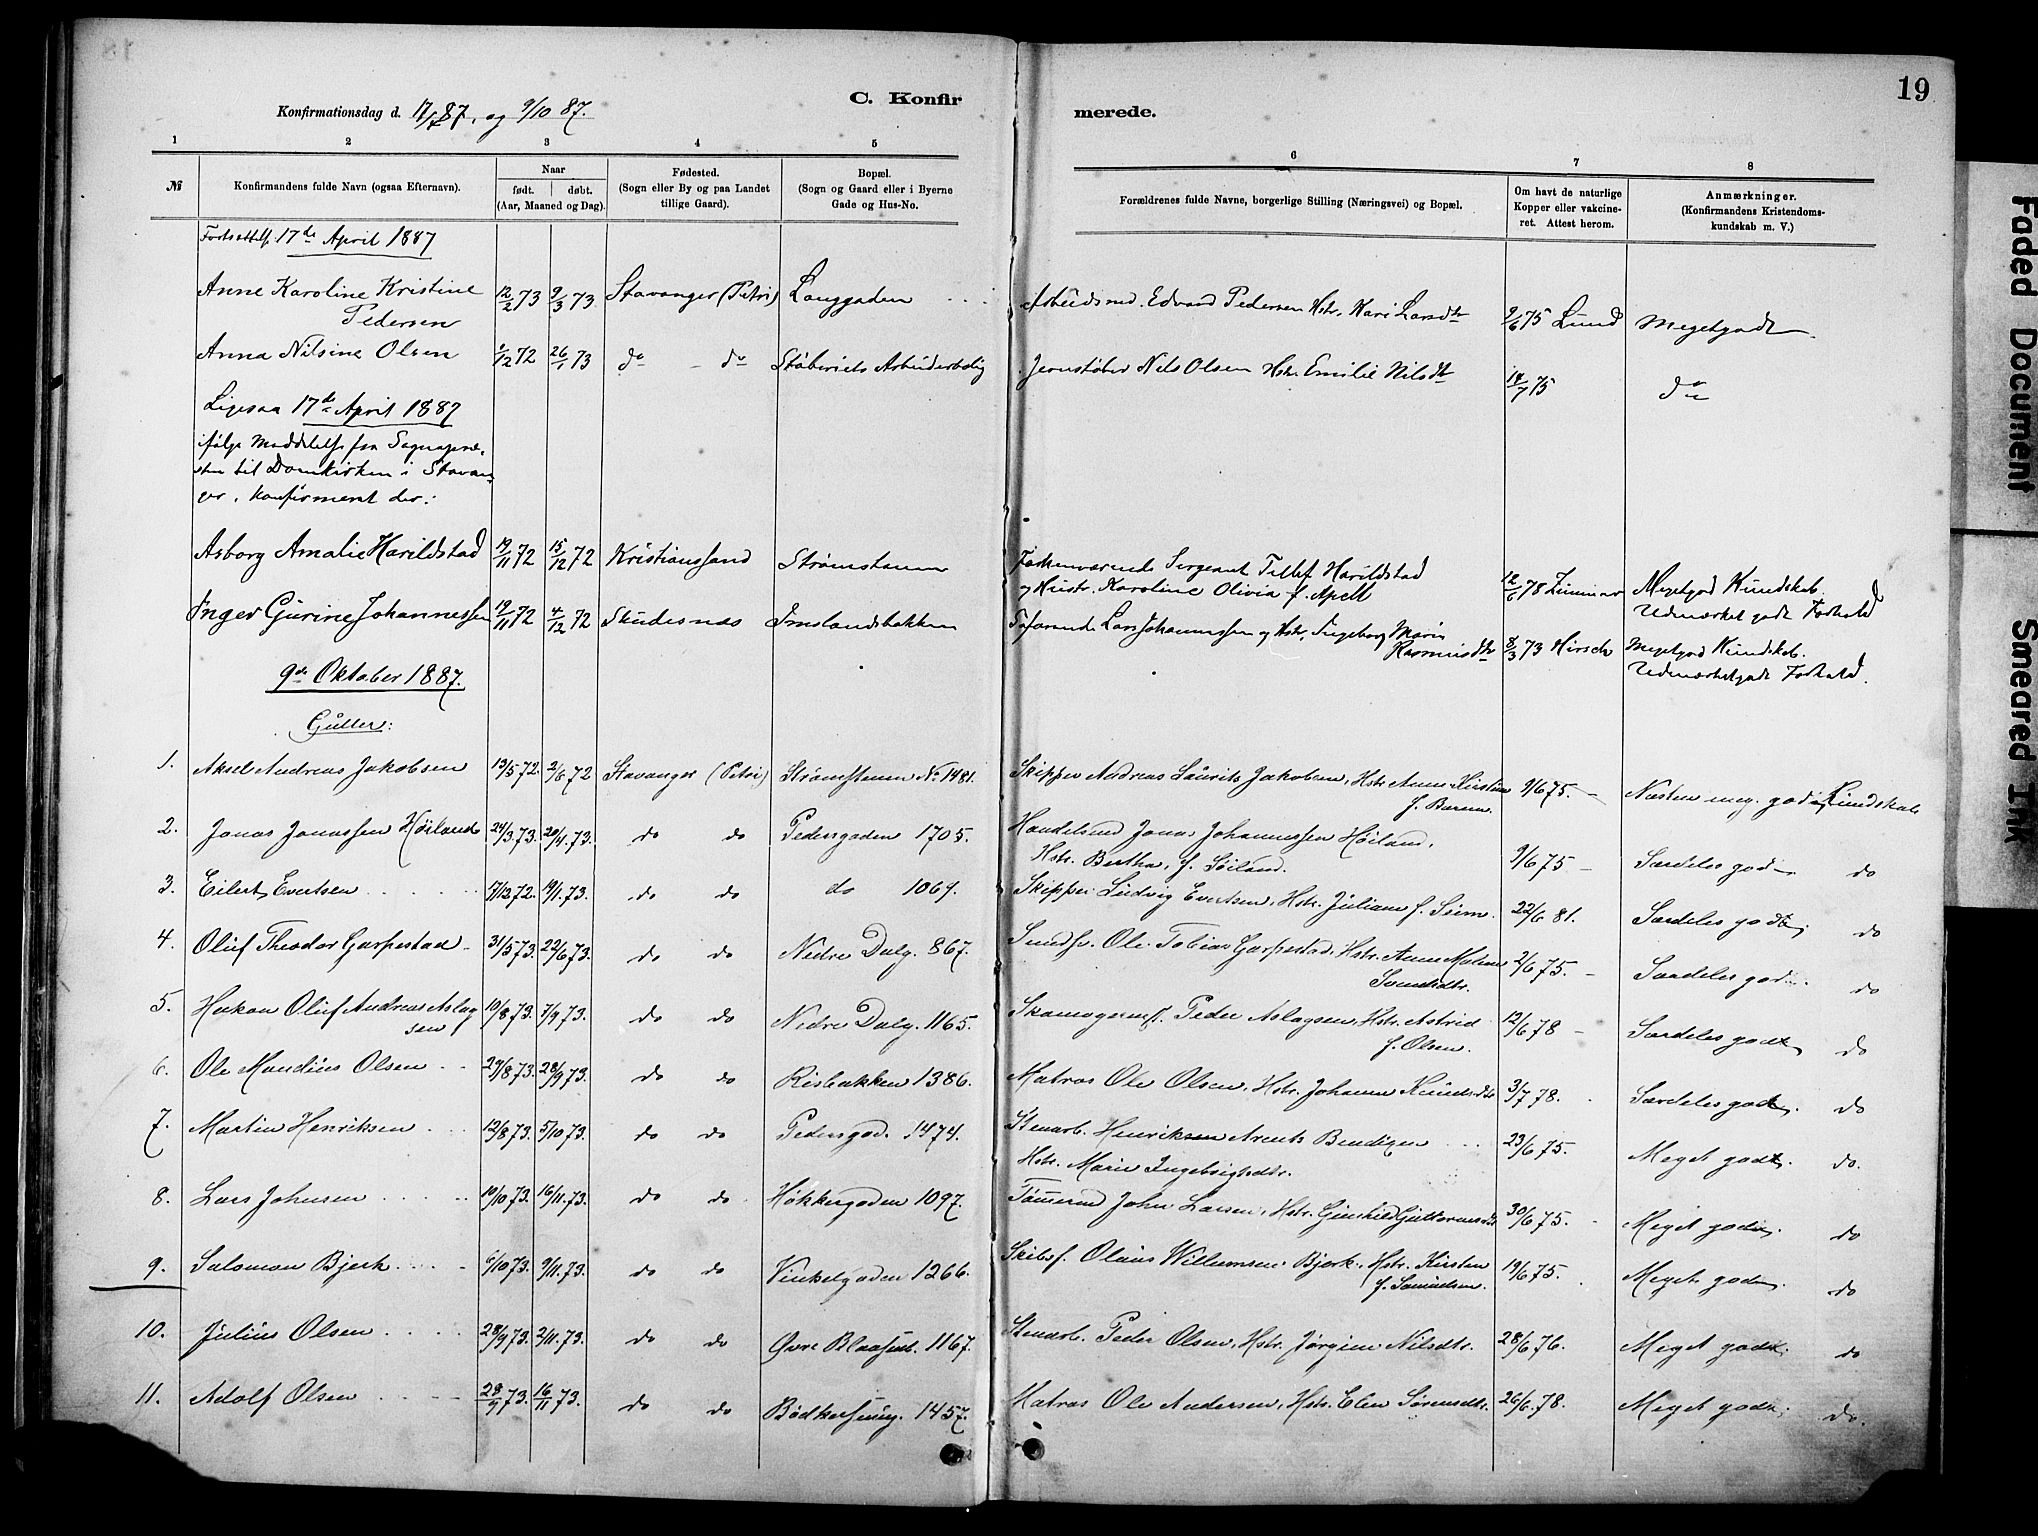 19
Konfirmationsdag d. 17/4 87, og 9/10 87. C. Konfirmerede.
1 2 3 4 5 6 7 8
№ Konfirmandens fulde Navn (ogsaa Efternavn). Naar født. døbt. (Aar, Maaned og Dag). Fødested. (Sogn eller By og paa Landet tillige Gaard). Bopæl. (Sogn og Gaard eller i Byerne Gade og Hus-No. Forældrenes fulde Navne, borgerlige Stilling (Næringsvei) og Bopæl. Om havt de naturlige Kopper eller vakcineret. Attest herom. Anmærkninger. (Konfirmandens Kristendomskundskab m. V.)
Fortsættelse 17de April 1887
Anne Karoline Kristine Pedersen 12/2 73 9/3 73. Stavanger (Petri) Langgaden Arbeidsmd. Edvard Pedersen Hstr. Kari Larsdtr 9/6 75 Lund Meget godt.
Anna Nilsine Olsen 1/12 72 26/1 73 do do Støberiets Arbeiderbolig Jernstøber Nels Olsen Hstr Emilie Nilsdtr 14/7 75 do
Ligesaa 17de April 1887
ifølge Meddelelse fra Sognepræ-
sten til Domkirken i Stavan-
ger, konfirmeret der:
Asborg Amalie Harildstad 19/11 72 15/12 72 Kristianssand Strømstenen Sergeant Tellef Harildstad
og Hustr. Karoline Olivia f. Apelt 12/6 78 Zimmer Megetgod Kundskab.
Udmærket godt Forhold
Inger Gurine Johannessen 19/11 72 4/12 72 Skudesnæs Imslandsbakken Søfarende Lars Johannessen og Hstr. Ingeborg Marie
Rasmusdtr 8/3 73 Hirsch Megetgod Kundskab.
Udmærketgodt Forhold.
9de Oktober 1887.
Gutter:
1. Aksel Andreas Jakobsen 13/5 72. 2/6 72 Stavanger (Petri) Strømstenen No. 1481. Skipper Andreas Laurits Jakobsen, Hstr. Anne Kirstine 9/6 75. Næsten meg. god Kundskab
2. Jonas Jonassen Höiland 24/3 73. 20/4 73. do do Pedersgaden 1705. Handelsmd Jonas Johannessen Höiland,
Hstr. Bertha, f. Söiland. 9/6 75 Særdeles god do
3. Eilert Evertsen 5/12 72. 19/1 73. do do do 1069. Skipper Ludvig Evertsen, Hstr. Juliane f. Seim. 22/6 81. Særdeles godt, do
4. Oluf Theodor Garpestad 31/5 73. 22/6 73. do do Nedre Dalg. 867. Ole Tobias Garpestad, Hstr. Anne Malene
Svendsdtr. 2/6 75. Særdeles god do
5. Hakon Oluf Andreas Aslag-
sen 10/8 73. 7/9 73. do do Nedre Dalg. 1165. Skomagerm. Peder Aslagsen, Hstr. Astrid
f. Olsen. 12/6 78 Særdeles godt, do
6. Ole Mandius Olsen 27/8 73. 28/9 73. do do Risbakken 1386. Matros Ole Olsen, Hstr. Johanne Knudsdtr 3/7 78. Særdeles godt. do
7. Martin Henriksen 12/8 73. 5/10 73. do do Pedersgad. 1474. Stenarb. Henriksen Arents Bendigsen
Hstr. Marie Ingebrigtsdtr. 23/6 75. Meget godt. do.
8. Lars Johnsen 19/10 73. 16/11 73. do do Høkkergaden 1097. Tömermd John Larsen, Hstr. Gunhild Guttormsdtr 30/6 75. Meget godt. do
9. Salomon Bjerk 6/10 73. 9/11 73. do do Vinkelgaden 1266. Skibsf. Olaus Willumsen Bjerk, Hstr. Kirsten
f. Samuelsen. 19/6 75. Meget god. do
10. Julius Olsen 28/9 73. 2/11 73. do do Øvre Blaasenb. 1167. Stenarb. Peder Olsen, Hstr. Jørgine Nilsdtr. 28/6 76. Meget godt. do
11. Adolf Olsen 28/9 73. 16/11 73. do do 1457. Matros Ole Andersen, Hstr. Elen Sörensdtr. 26/6 78. Meget godt. do.
Faded Document
Smeared Ink